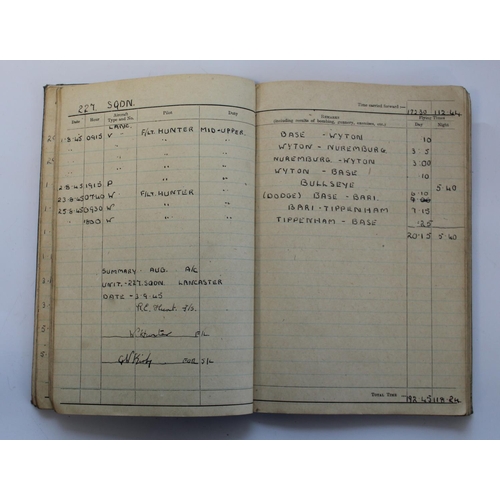 227. SQDN.
Time carried forward:— 172.30 113.44
Date Hour Aircraft Type and No. Pilot Duty
REMARKS (including results of bombing, gunnery, exercises, etc.) Flying Times Day Night
LANC.
1·8·45 0915 V F/LT. HUNTER MID-UPPER. BASE - WYTON ·10
" " " WYTON - NUREMBURG 3·5
" " " NUREMBURG - WYTON 3·00
" " " WYTON - BASE ·10
2·8·45 1915 P " " BULLSEYE 5·40
23·8·45 0740 W F/LT. HUNTER " (DODGE) BASE - BARI 6·10
25·8·45 0930 W " " BARI - TIPPENHAM 7·15
" 1830 W " " TIPPENHAM - BASE ·25
20·15 5·40
SUMMARY AUG. A/C
UNIT.- 227 SQDN. LANCASTER
DATE - 3·9·45
F/L
S/L
TOTAL TIME